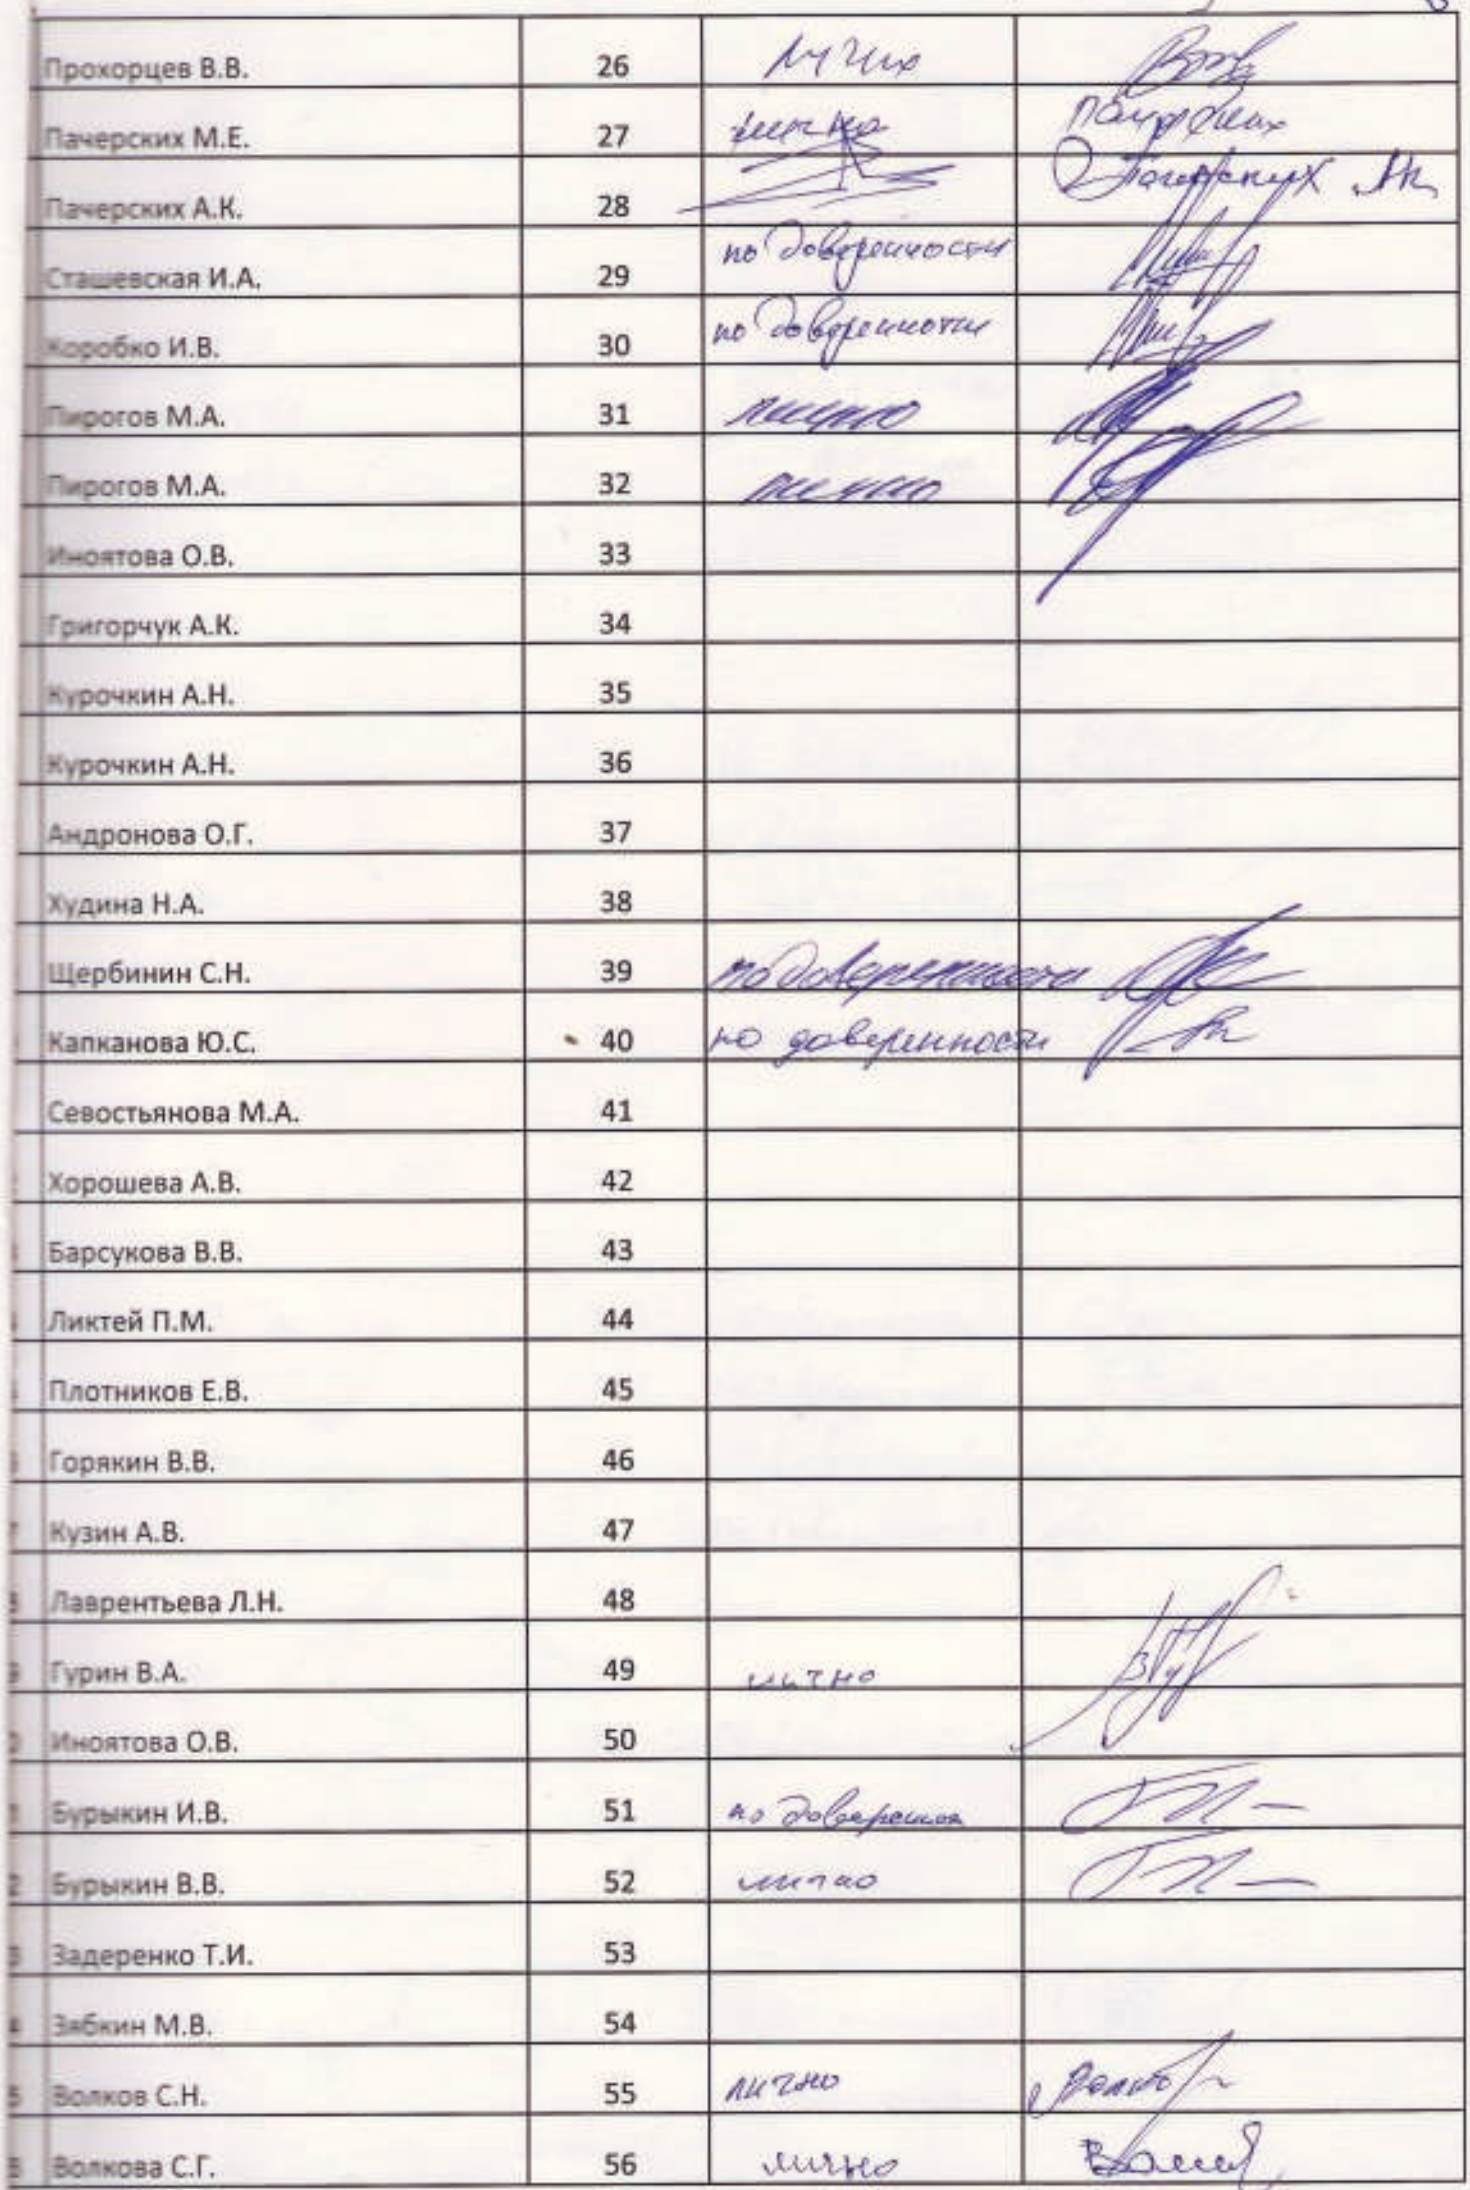 Прохорцев В.В. 26 лично
Пачерских М.Е. 27 лично Пачерских
Пачерских А.К. 28 Пачерских АК
Сташевская И.А. 29 по доверенности
Коробко И.В. 30 по доверенности
Пирогов М.А. 31 лично
Пирогов М.А. 32 лично
Иноятова О.В. 33
Григорчук А.К. 34
Курочкин А.Н. 35
Курочкин А.Н. 36
Андронова О.Г. 37
Худина Н.А. 38
Щербинин С.Н. 39 по доверенности
Капканова Ю.С. 40 по доверенности
Севостьянова М.А. 41
Хорошева А.В. 42
Барсукова В.В. 43
Ликтей П.М. 44
Плотников Е.В. 45
Горякин В.В. 46
Кузин А.В. 47
Лаврентьева Л.Н. 48
Гурин В.А. 49 лично
Иноятова О.В. 50
Бурыкин И.В. 51 по доверенн
Бурыкин В.В. 52 лично
Задеренко Т.И. 53
Зябкин М.В. 54
Волков С.Н. 55 лично
Волкова С.Г. 56 лично